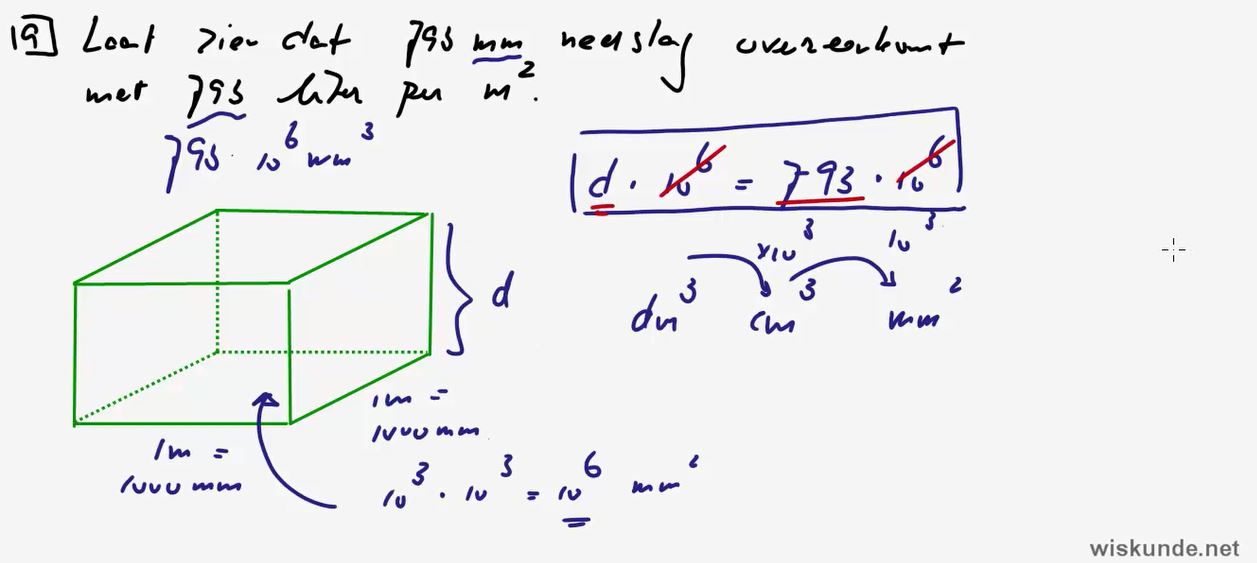 19 Laat zien dat 793 mm neerslag overeenkomt
met 793 liter per m².
793 · 10⁶ mm³
d · 10⁶ = 793 · 10⁶
×10³ 10³
dm³ cm³ mm²
d
1m =
1000 mm
1m =
1000 mm
10³ · 10³ = 10⁶ mm²
wiskunde.net